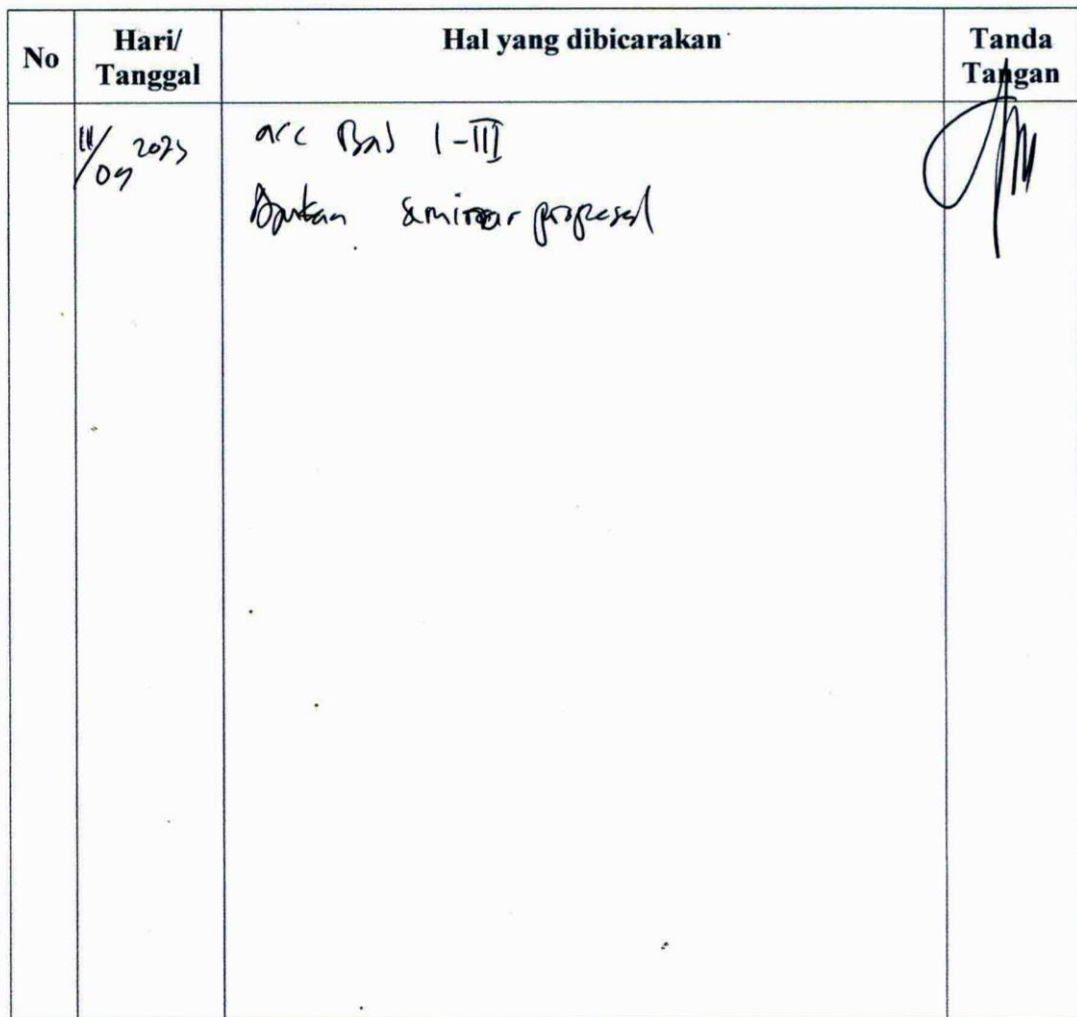 No
Hari/
Tanggal
Hal yang dibicarakan
Tanda
Tangan
acc Bab I-III
seminar proposal